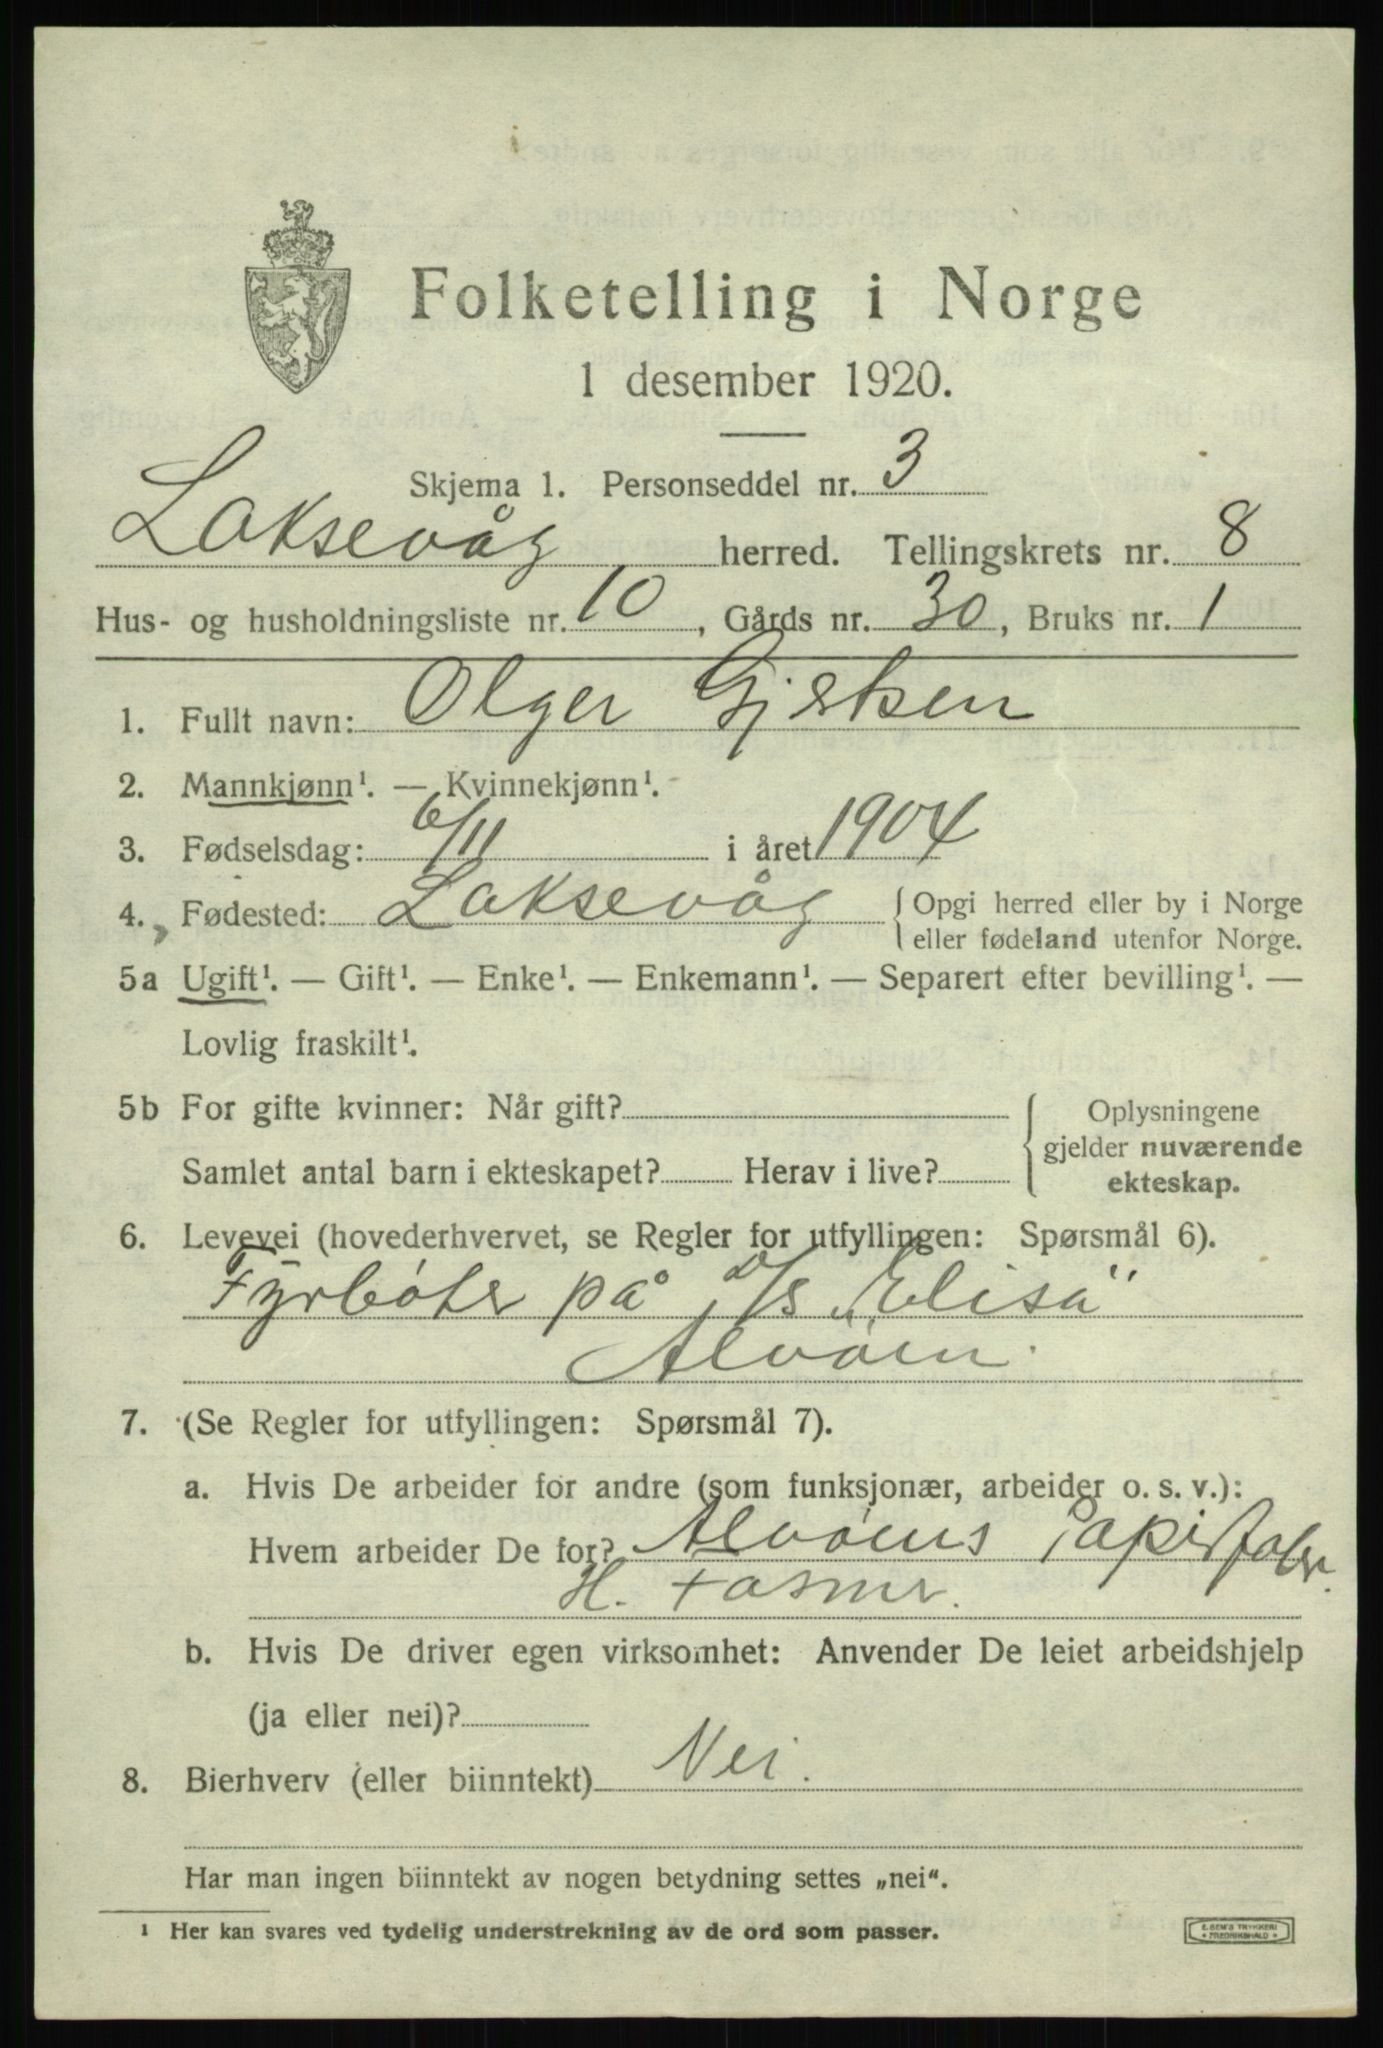 Folketelling i Norge
1 desember 1920.
Skjema 1. Personseddel nr. 3
Laksevåg herred. Tellingskrets nr. 8
Hus- og husholdningsliste nr. 10, Gårds nr. 30, Bruks nr. 1
1. Fullt navn: Olger Gjertsen
2. Mannkjønn¹. — Kvinnekjønn¹.
3. Fødselsdag: 6/11 i året 1904
4. Fødested: Laksevåg {Opgi herred eller by i Norge
eller fødeland utenfor Norge.
5a Ugift¹. — Gift¹. — Enke¹. — Enkemann¹. — Separert efter bevilling¹. —
Lovlig fraskilt¹.
5b For gifte kvinner: Når gift? {Oplysningene
gjelder nuværende
Samlet antal barn i ekteskapet? Herav i live? ekteskap.
6. Levevei (hovederhvervet, se Regler for utfyllingen: Spørsmål 6).
Fyrbøter på D/S „Elisa"
Alvøen.
7. (Se Regler for utfyllingen: Spørsmål 7).
a. Hvis De arbeider for andre (som funksjonær, arbeider o. s. v.):
Hvem arbeider De for? Alvøens Papirfabr.
H. Fasmer.
b. Hvis De driver egen virksomhet: Anvender De leiet arbeidshjelp
(ja eller nei)?
8. Bierhverv (eller biinntekt) Nei.
Har man ingen biinntekt av nogen betydning settes „nei".
¹ Her kan svares ved tydelig understrekning av de ord som passer.
E. SEM'S TRYKKERI
• FREDRIKSHALD •